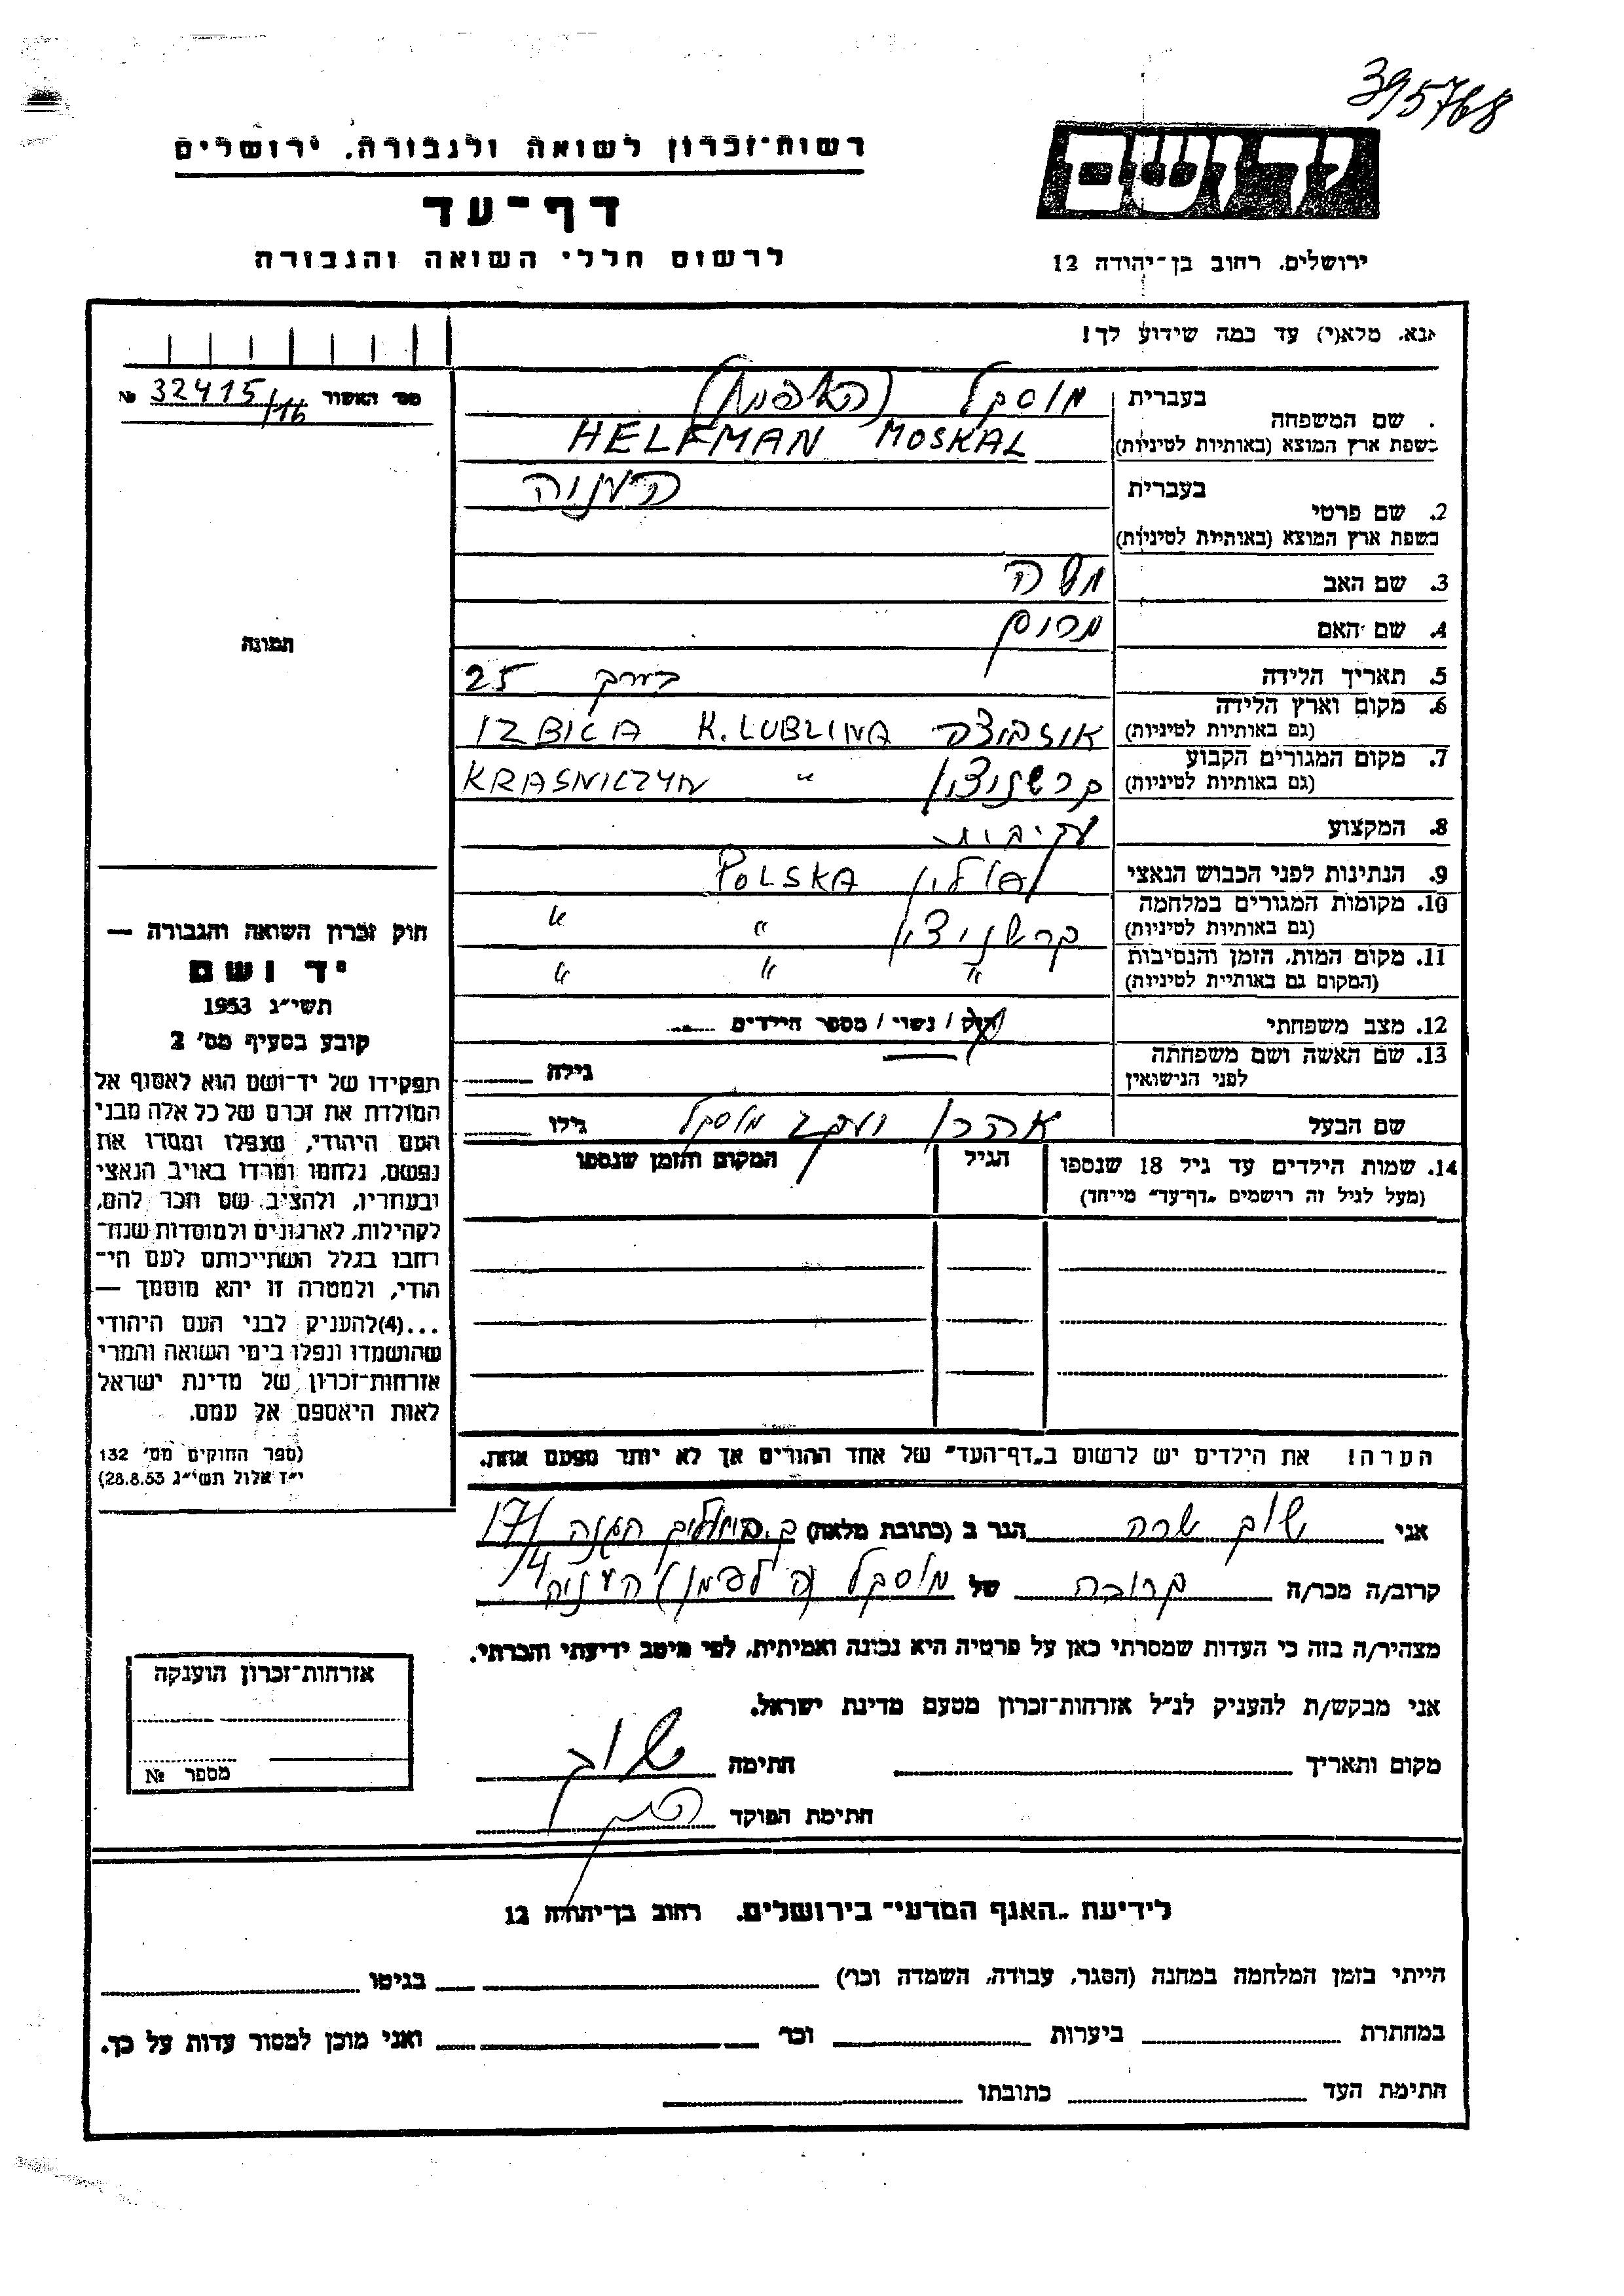 395768
רשות־זכרון לשואה ולגבורה, ירושלים
דף־עד
לרשום חללי השואה והגבורה
יד ושם
ירושלים, רחוב בן־יהודה 12
אנא, מלא(י) עד כמה שידוע לך!
מס׳ האשור № 32415/116
שם המשפחה בעברית מוסקל
בשפת ארץ המוצא (באותיות לטיניות) HELFMAN MOSKAL
2. שם פרטי בעברית העניה
בשפת ארץ המוצא (באותיות לטיניות)
3. שם האב משה
4. שם האם
5. תאריך הלידה בערך 25
6. מקום וארץ הלידה (גם באותיות לטיניות) איזביצה K. LUBLINA IZBICA
7. מקום המגורים הקבוע (גם באותיות לטיניות) קרשניצין " KRASNICZYN
8. המקצוע
9. הנתינות לפני הכבוש הנאצי פולין POLSKA
10. מקומות המגורים במלחמה (גם באותיות לטיניות) קרשניצין " "
11. מקום המות, הזמן והנסיבות (המקום גם באותיות לטיניות) " " "
12. מצב משפחתי רוק / נשוי / מספר הילדים
13. שם האשה ושם משפחתה לפני הנישואין גילה
שם הבעל אהרן יעקב מוסקל גילו
14. שמות הילדים עד גיל 18 שנספו (מעל לגיל זה רושמים „דף־עד” מייחד) הגיל המקום והזמן שנספו
הערה! את הילדים יש לרשום ב„דף־העד” של אחד ההורים אך לא יותר מפעם אחת.
תמונה
חוק זכרון השואה והגבורה —
יד ושם
תשי״ג 1953
קובע בסעיף מס׳ 2
תפקידו של יד־ושם הוא לאסוף אל
המולדת את זכרם של כל אלה מבני
העם היהודי, שנפלו ומסרו את
נפשם, נלחמו ומרדו באויב הנאצי
ובעוזריו, ולהציב שם וזכר להם,
לקהילות, לארגונים ולמוסדות שנח־
רבו בגלל השתייכותם לעם הי־
הודי, ולמטרה זו יהא מוסמך —
...(4) להעניק לבני העם היהודי
שהושמדו ונפלו בימי השואה והמרי
אזרחות־זכרון של מדינת ישראל
לאות היאספם אל עמם.
(ספר החוקים מס׳ 132
י״ז אלול תשי״ג 28.8.53)
אני שוק שרה הגר ב (כתובת מלאה) 17/
קרוב/ה מכר/ה קרובה של מוסקל (הלפמן) העניה 14
מצהיר/ה בזה כי העדות שמסרתי כאן על פרטיה היא נכונה ואמיתית, לפי מיטב ידיעתי והכרתי.
אני מבקש/ת להעניק לנ״ל אזרחות־זכרון מטעם מדינת ישראל.
מקום ותאריך חתימה שוק
חתימת הפוקד
אזרחות־זכרון הוענקה
מספר №
לידיעת „האגף המדעי” בירושלים, רחוב בן־יהודה 12
הייתי בזמן המלחמה במחנה (הסגר, עבודה, השמדה וכר׳) בגיטו
במחתרת ביערות וכר׳ ואני מוכן למסור עדות על כך.
חתימת העד כתובתו